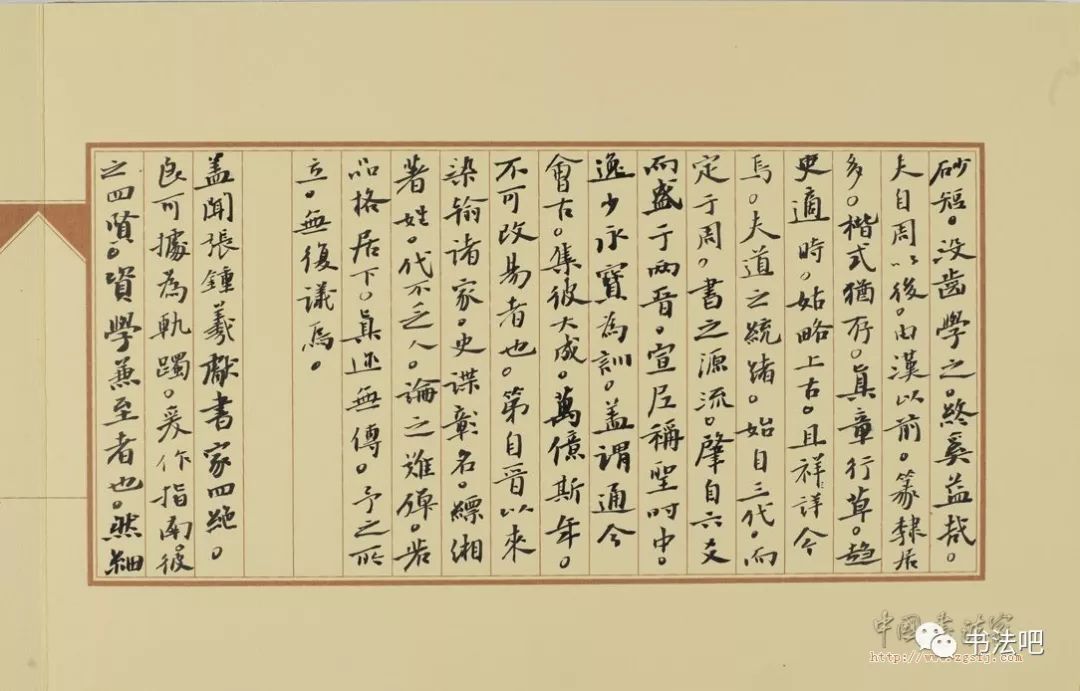 砂短。没齒學之。終奚益哉。
夫自周以後。由漢以前。篆隸居
多。楷式猶存。真章行草。趋
吏適時。姑略上古。且祥詳今
焉。夫道之統緒。始自三代。而
定于周。書之源流。肇自六爻
而盛于兩晋。宣尼稱聖时中。
逸少永寶為訓。盖謂通今
會古。集彼大成。萬億斯年。
不可改易者也。第自晋以来
染翰诸家。史諜彰名。縹湘
著姓。代不乏人。論之難殫。若
品格居下。真迹無傳。予之所
立。無復議焉。
盖聞張鍾羲獻書家四绝。
良可據為軌躅。爰作指南。彼
之四賢。資學兼至者也。然細
中國書法家
http://www.zgsfj.com
书法吧